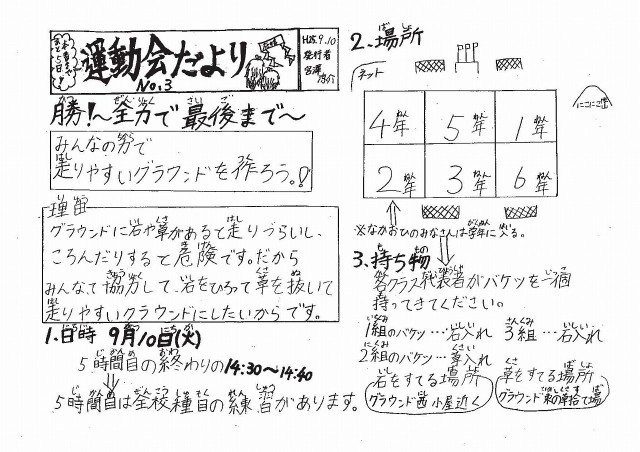 本番まで
あと5日!
運動会だより
No.3
H25.9.10
発行者
勝!〜全力で最後まで〜
みんなの力で
走りやすいグラウンドを作ろう。!
理由
グラウンドに石や草があると走りづらいし、
ころんだりすると危険です。だから
みんなで協力して、石をひろって草を抜いて
走りやすいグラウンドにしたいからです。
1.日時 9月10日(火)
5時間目の終わりの14:30〜14:40
5時間目は全校種目の練習があります。
2.場所
ネット
にこにこ山
4年 5年 1年
2年 3年 6年
※なかおひのみなさんは学年に入る。
3.持ち物
各クラス代表者がバケツを一個
持ってきてください。
1組のバケツ…石入れ 3組…石入れ
2組のバケツ…草入れ
石をすてる場所
グラウンド西小屋近く
草をすてる場所
グラウンド東の草捨て場